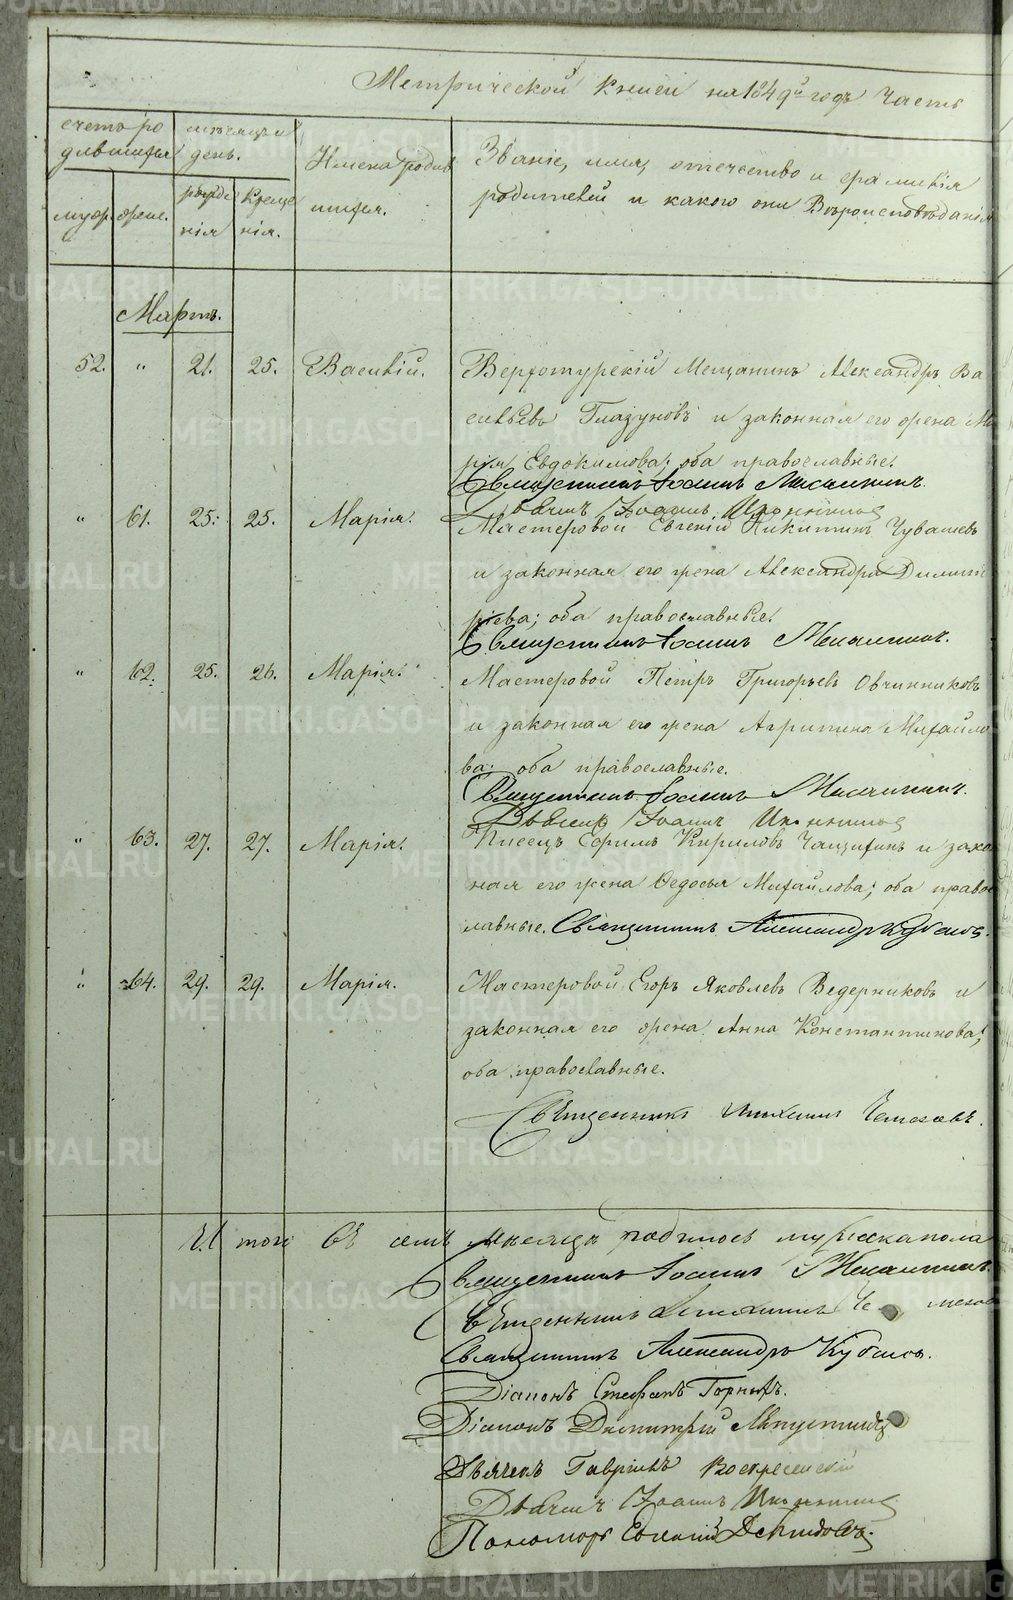 Метрической книги на 1849й годъ часть
счетъ ро
дившихся
мѣсяцъ и
день.
Имена родив
шихся.
Званіе, имя, отечество и фамилія
родителей и какого они Вѣроисповѣданія
муж. жене.
рожде
нія
Креще
нія.
Мартъ.
52. " 21. 25. Василій. Верхотурскій Мещанинъ Александръ Ва
сильевъ Глазуновъ и законная его жена Ма
рія Евдокимова; оба православные.
Священникъ Іоаннъ
Дьячекъ Іоаннъ
" 61. 25. 25. Марія. Мастеровой Евгеній Никитинъ Чувашевъ
и законная его жена Александра Димит
ріева; оба православные.
Священникъ Іоаннъ
" 62. 25. 26. Марія. Мастеровой Петръ Григорьевъ Овчинниковъ
и законная его жена Агрипина Михайло
ва; оба православные.
Священникъ Іоаннъ
Дьячекъ Іоаннъ
" 63. 27. 27. Марія. Писецъ Ефимъ Кириловъ Чащихинъ и зако
ная его жена Ѳедосья Михайлова; оба право
славные. Священникъ Александръ
" 64. 29. 29. Марія. Мастеровой Егоръ Яковлевъ Ведерниковъ и
законная его жена Анна Константинова;
оба православные.
Священникъ
И того въ семъ мѣсяцѣ родилось мужска пола
Священникъ Іоаннъ
Священникъ
Священникъ Александръ
Діаконъ Стефанъ Горныхъ.
Діаконъ Димитрій
Дьячекъ Гавріилъ Воскресенскій
Дьячекъ Іоаннъ
Пономарь Евгеній
METRIKI.GASO-URAL.RU